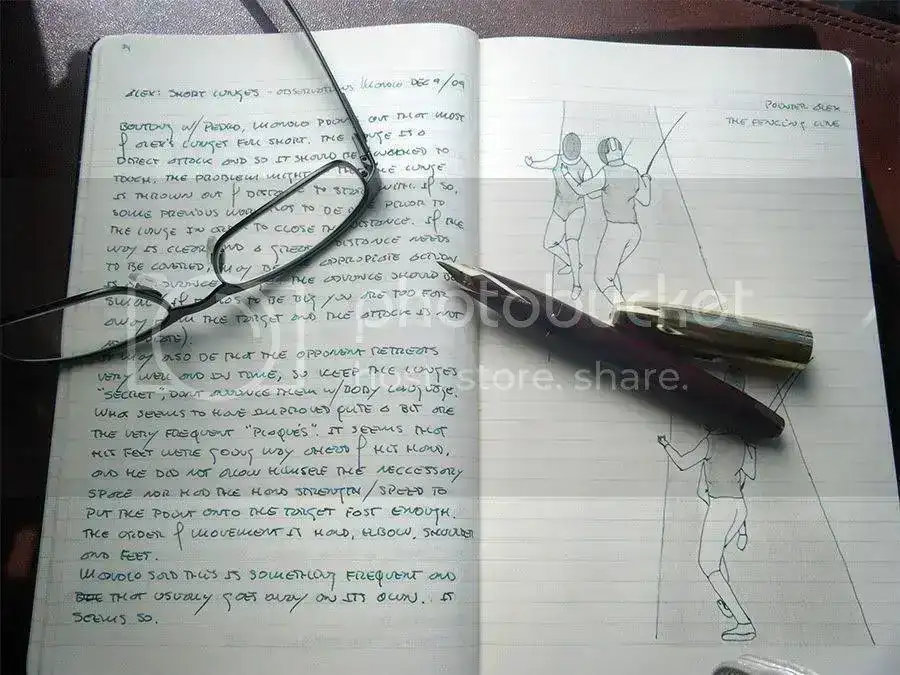 ALEX: SHORT LUNGES - OBSERVATIONS MANOLO DEC 9/09
BOUTING W/ PEDRO, MANOLO POINTS OUT THAT MOST
OF ALEX'S LUNGES FALL SHORT. THE LUNGE IS A
DIRECT ATTACK AND SO IT SHOULD BE TO
TOUCH. THE PROBLEM MIGHT THE LUNGE
IS THROWN OUT OF DISTANCE TO START WITH. IF SO,
SOME PREVIOUS WORK HAS TO BE PRIOR TO
THE LUNGE IN ORDER TO CLOSE THE DISTANCE. IF THE
WAY IS CLEAR AND A GREAT DISTANCE NEEDS
TO BE COVERED, MAY BE APROPIATE ACTION
THE ADVANCE SHOULD BE
SMALL IF HAS TO BE BIG YOU ARE TOO FAR
AWAY FROM THE TARGET AND THE ATTACK IS NOT
IT MAY ALSO BE THAT THE OPPONENT RETREATS
VERY WELL AND IN TIME, SO KEEP THE LUNGES
"SECRET", DON'T ANNOUNCE THEM W/ BODY LANGUAGE.
WHAT SEEMS TO HAVE IMPROVED QUITE A BIT ARE
THE VERY FREQUENT "PLAQUÉS". IT SEEMS THAT
HIS FEET WERE GOING WAY AHEAD OF HIS HAND,
AND HE DID NOT ALLOW HIMSELF THE NECCESSARY
SPACE NOR HAD THE HAND STRENGTH/SPEED TO
PUT THE POINT ONTO THE TARGET FAST ENOUGH.
THE ORDER OF MOVEMENT IS HAND, ELBOW, SHOULDER
AND FEET.
MANOLO SAID THIS IS SOMETHING FREQUENT AND
THAT USUALLY GOES AWAY ON ITS OWN. IT
SEEMS SO.
POINTER ALEX
THE FENCING LINE
photobucket
store. share.